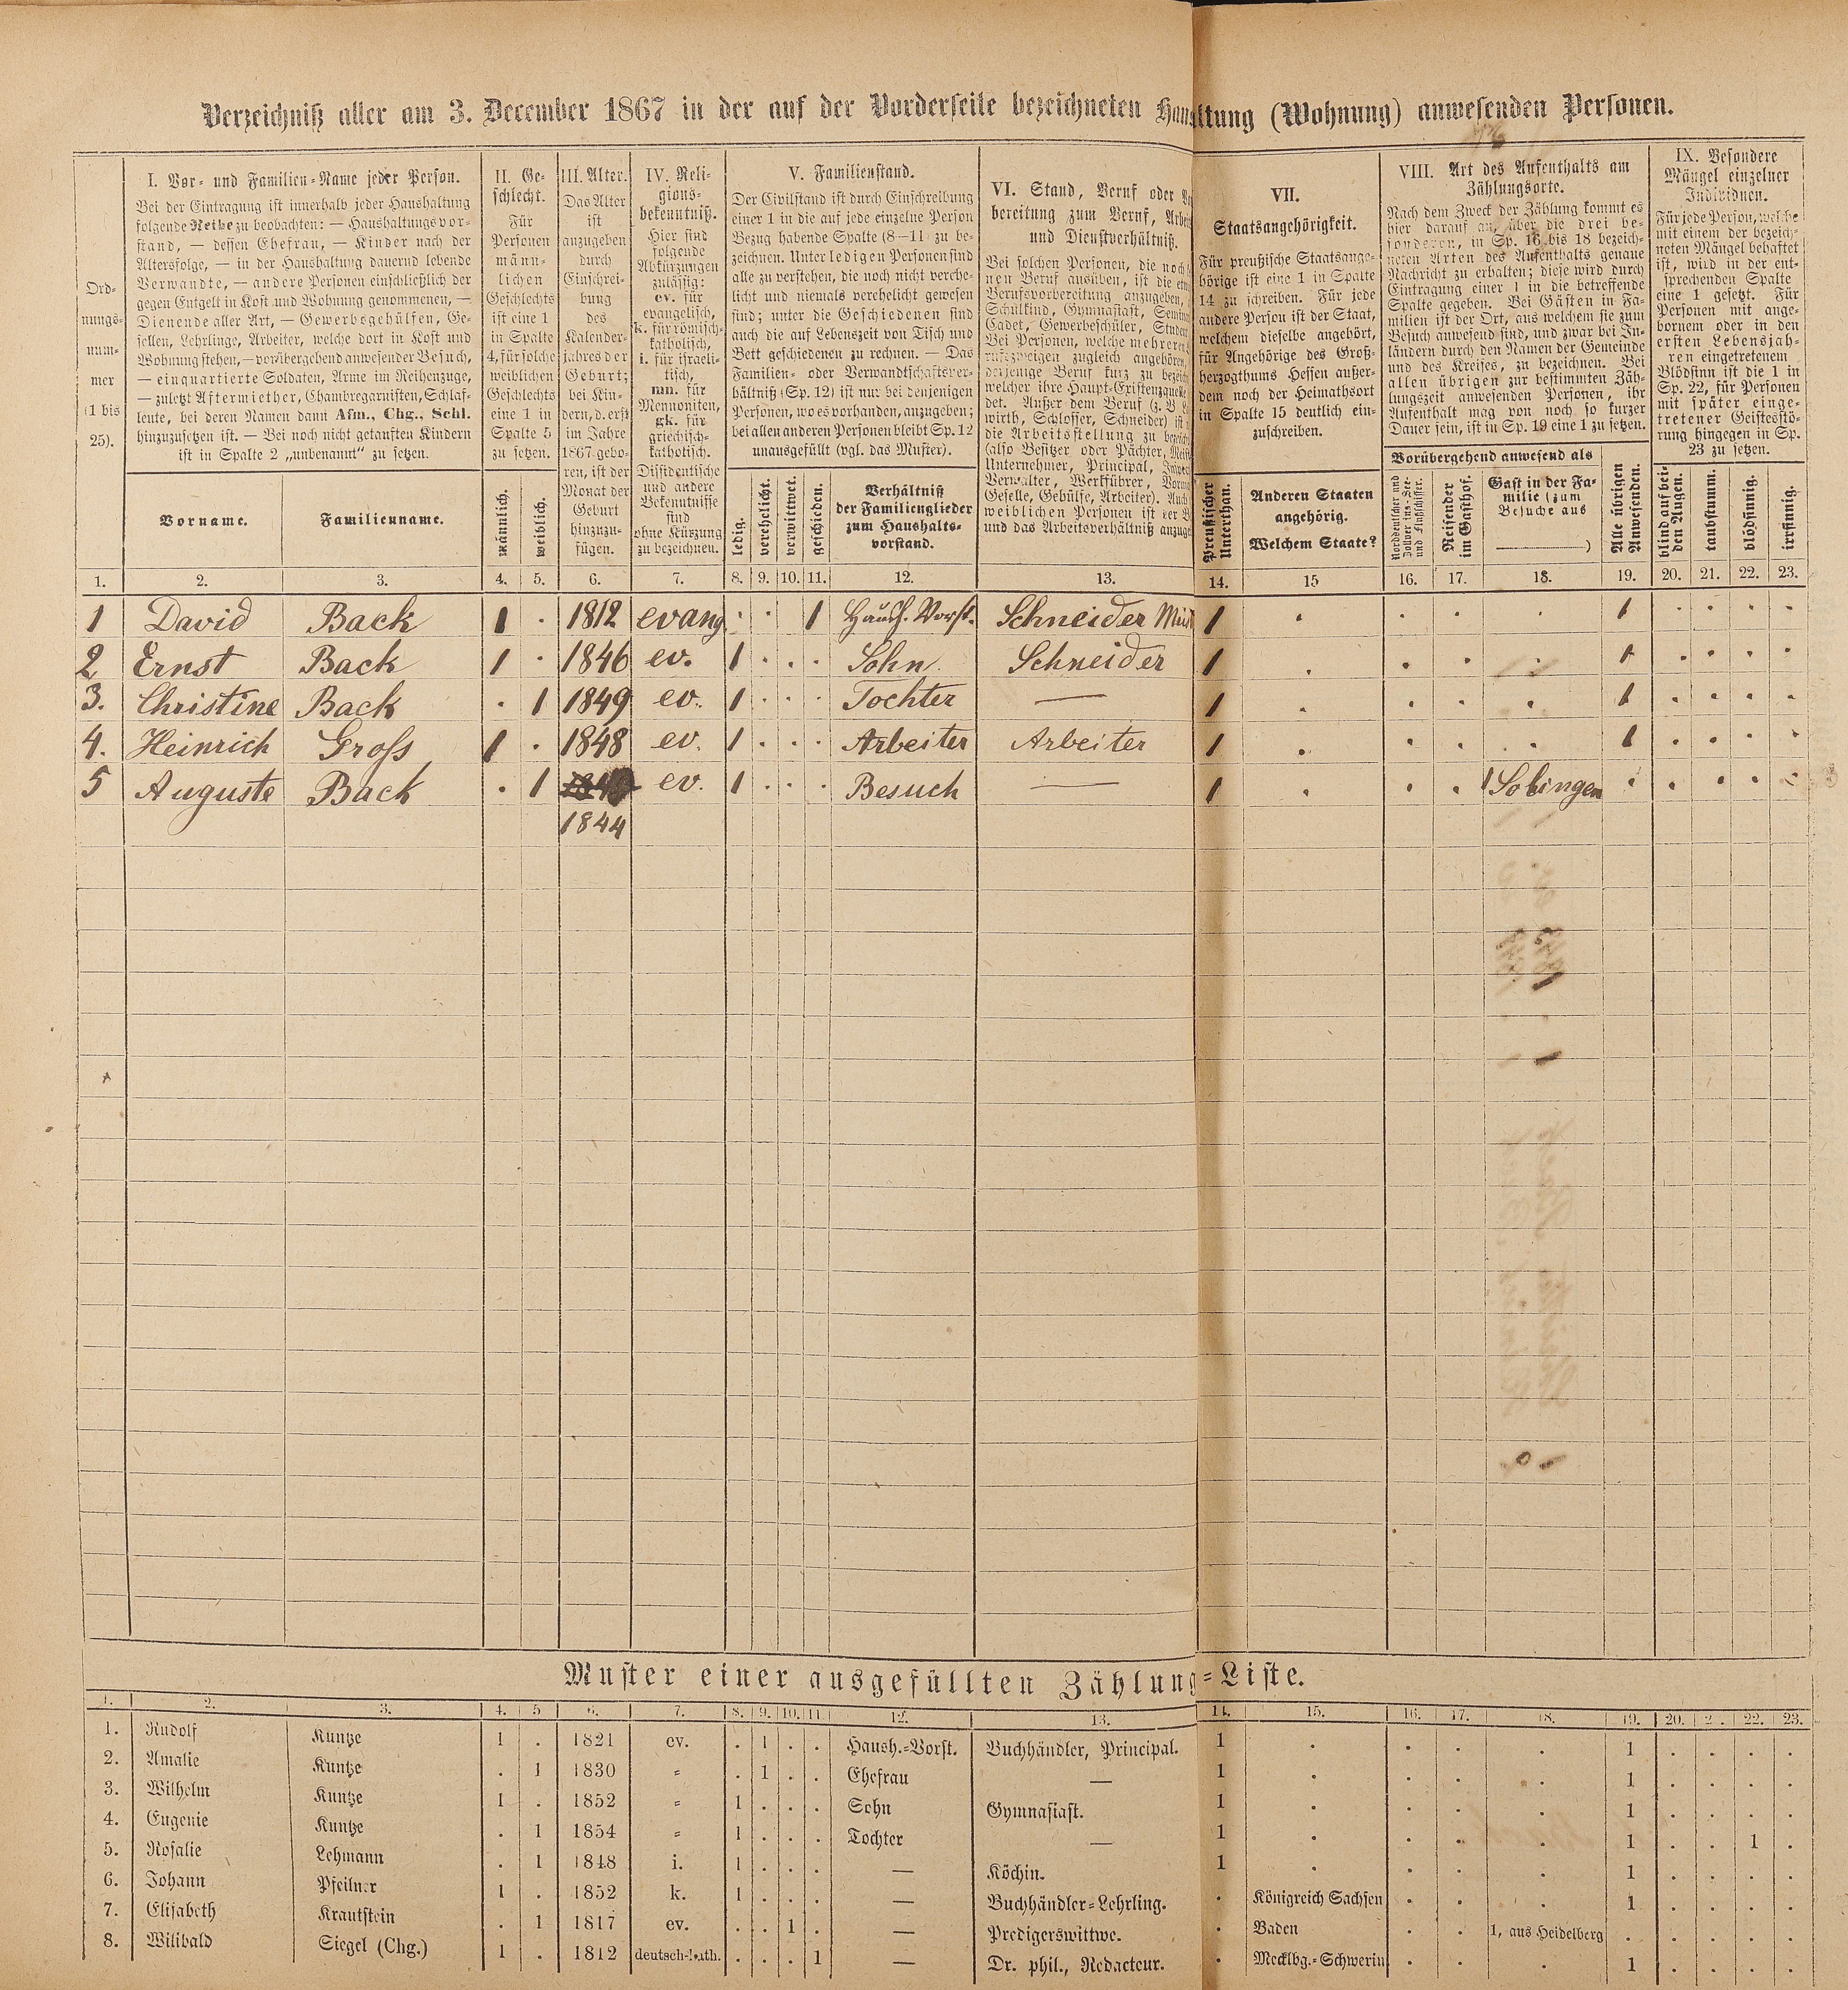 Verzeichniß aller am 3. December 1867 in der auf der Vorderseite bezeichneten Haushaltung (Wohnung) anwesenden Personen.
Ord-
nungs-
num-
mer
(1 bis
25).
I. Vor- und Familien-Name jeder Person.
Bei der Eintragung ist innerhalb jeder Haushaltung
folgende Reihe zu beobachten: — Haushaltungsvor-
stand, — dessen Ehefrau, — Kinder nach der
Altersfolge, — in der Haushaltung dauernd lebende
Verwandte, — andere Personen einschließlich der
gegen Entgelt in Kost und Wohnung genommenen, —
Dienende aller Art, — Gewerbsgehülfen, Ge-
sellen, Lehrlinge, Arbeiter, welche dort in Kost und
Wohnung stehen, — vorübergehend anwesender Besuch,
— einquartierte Soldaten, Arme im Reihenzuge,
— zuletzt Aftermiether, Chambregarnisten, Schlaf-
leute, bei deren Namen dann Afm., Chg., Schl.
hinzuzusetzen ist. — Bei noch nicht getauften Kindern
ist in Spalte 2 „unbenannt“ zu setzen.
Vorname.
Familienname.
II. Ge-
schlecht.
Für
Personen
männ-
lichen
Geschlechts
ist eine 1
in Spalte
4, für solche
weiblichen
Geschlechts
eine 1 in
Spalte 5
zu setzen.
männlich.
weiblich.
III. Alter.
Das Alter
ist
anzugeben
durch
Einschrei-
bung
des
Kalender-
jahres der
Geburt;
bei Kin-
dern, d. erst
im Jahre
1867 gebo-
ren, ist der
Monat der
Geburt
hinzuzu-
fügen.
IV. Reli-
gions-
bekenntniß.
Hier sind
folgende
Abkürzungen
zulässig:
ev. für
evangelisch,
k. für römisch-
katholisch,
i. für israeli-
tisch,
mn. für
Mennoniten,
gk. für
griechisch-
katholisch.
Dissidentische
und andere
Bekenntnisse
sind
ohne Kürzung
zu bezeichnen.
V. Familienstand.
Der Civilstand ist durch Einschreibung
einer 1 in die auf jede einzelne Person
Bezug habende Spalte (8—11) zu be-
zeichnen. Unter ledigen Personen sind
alle zu verstehen, die noch nicht verehe-
licht und niemals verehelicht gewesen
sind; unter die Geschiedenen sind
auch die auf Lebenszeit von Tisch und
Bett geschiedenen zu rechnen. — Das
Familien- oder Verwandtschaftsver-
hältniß (Sp. 12) ist nur bei denjenigen
Personen, wo es vorhanden, anzugeben;
bei allen anderen Personen bleibt Sp. 12
unausgefüllt (vgl. das Muster).
ledig.
verehelicht.
verwittwet.
geschieden.
Verhältniß
der Familienglieder
zum Haushalts-
vorstand.
VI. Stand, Beruf oder
bereitung zum Beruf,
und Dienstverhältniß.
Bei solchen Personen, die noch
nen Beruf ausüben, ist die
Berufsvorbereitung anzugeben,
Schulkind, Gymnasiast,
Cadet, Gewerbeschüler,
Bei Personen, welche mehreren
rufszweigen zugleich angehören,
derjenige Beruf kurz zu
welcher ihre Haupt-Existenzquelle
det. Außer dem Beruf (z. B.
wirth, Schlosser, Schneider) ist
die Arbeitsstellung zu
(also Besitzer oder Pächter,
Unternehmer, Principal,
Verwalter, Werkführer,
Geselle, Gehülfe, Arbeiter). Auch
weiblichen Personen ist der
und das Arbeitsverhältniß
VII.
Staatsangehörigkeit.
Für preußische Staatsange-
hörige ist eine 1 in Spalte
14 zu schreiben. Für jede
andere Person ist der Staat,
welchem dieselbe angehört,
für Angehörige des Groß-
herzogthums Hessen außer-
dem noch der Heimathsort
in Spalte 15 deutlich ein-
zuschreiben.
Preußischer
Unterthan.
Anderen Staaten
angehörig.
Welchem Staate?
VIII. Art des Aufenthalts am
Zählungsorte.
Nach dem Zweck der Zählung kommt es
hier darauf an, über die drei be-
sonderen, in Sp. 16 bis 18 bezeich-
neten Arten des Aufenthalts genaue
Nachricht zu erhalten; diese wird durch
Eintragung einer 1 in die betreffende
Spalte gegeben. Bei Gästen in Fa-
milien ist der Ort, aus welchem sie zum
Besuch anwesend sind, und zwar bei In-
ländern durch den Namen der Gemeinde
und des Kreises, zu bezeichnen. Bei
allen übrigen zur bestimmten Zäh-
lungszeit anwesenden Personen, ihr
Aufenthalt mag von noch so kurzer
Dauer sein, ist in Sp. 19 eine 1 zu setzen.
Vorübergehend anwesend als
Norddeutscher und
Zollvereins-See-
und Flußschiffer.
Reisender
im Gasthof.
Gast in der Fa-
milie (zum
Besuche aus
)
Alle übrigen
Anwesenden.
IX. Besondere
Mängel einzelner
Individuen.
Für jede Person, welche
mit einem der bezeich-
neten Mängel behaftet
ist, wird in der ent-
sprechenden Spalte
eine 1 gesetzt. Für
Personen mit ange-
bornem oder in den
ersten Lebensjah-
ren eingetretenem
Blödsinn ist die 1 in
Sp. 22, für Personen
mit später einge-
tretener Geistesstö-
rung hingegen in Sp.
23 zu setzen.
blind auf bei-
den Augen.
taubstumm.
blödsinnig.
irrsinnig.
1. 2. 3. 4. 5. 6. 7. 8. 9. 10. 11. 12. 13. 14. 15 16. 17. 18. 19. 20. 21. 22. 23.
1 David Back 1 . 1812 evang . . 1 Haush. Vorst. Schneider 1 . . . . 1 . . . .
2 Ernst Back 1 . 1846 ev. 1 . . . Sohn. Schneider 1 . . . . 1 . . . .
3. Christine Back . 1 1849 ev. 1 . . . Tochter — 1 . . . . 1 . . . .
4. Heinrich Gross 1 . 1848 ev. 1 . . . Arbeiter Arbeiter 1 . . . . 1 . . . .
5 Auguste Back . 1 ev. 1 . . . Besuch — 1 . . . 1 Solingen . . . . .
1844
Muster einer ausgefüllten Zählung-Liste.
1. 2. 3. 4. 5 6. 7. 8. 9. 10. 11. 12. 13. 14. 15. 16. 17. 18. 19. 20. 2 . 22. 23.
1. Rudolf Kuntze 1 . 1821 ev. . 1 . . Haush.-Vorst. Buchhändler, Principal. 1 . . . . 1 . . . .
2. Amalie Kuntze . 1 1830 " . 1 . . Ehefrau — 1 . . . . 1 . . . .
3. Wilhelm Kuntze 1 . 1852 " 1 . . . Sohn Gymnasiast. 1 . . . . 1 . . . .
4. Eugenie Kuntze . 1 1854 " 1 . . . Tochter — 1 . . . . 1 . . 1 .
5. Rosalie Lehmann . 1 1848 i. 1 . . . — Köchin. 1 . . . . 1 . . . .
6. Johann Pfeilner 1 . 1852 k. 1 . . . — Buchhändler-Lehrling. . Königreich Sachsen . . . 1 . . . .
7. Elisabeth Krautstein . 1 1817 ev. . . 1 . — Predigerswittwe. . Baden . . 1, aus Heidelberg . . . . .
8. Wilibald Siegel (Chg.) 1 . 1812 deutsch-kath. . . . 1 — Dr. phil., Redacteur. . Mecklbg.-Schwerin . . . 1 . . . .